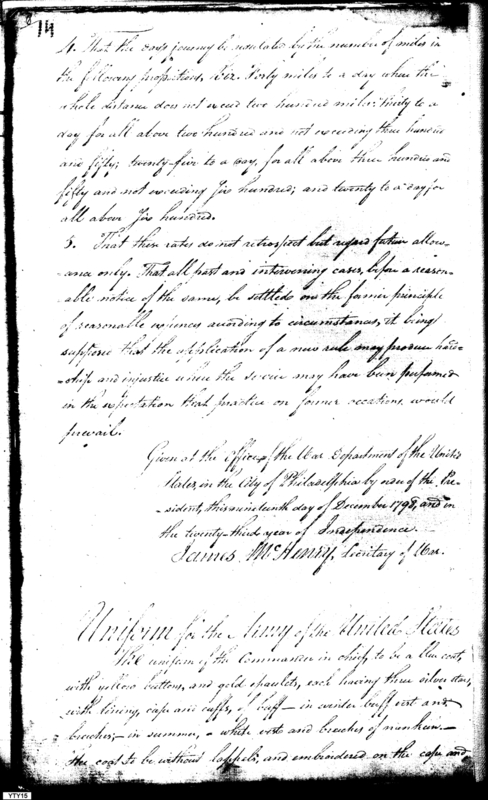 14
4. That the days journey be regulated by the number of miles in
the following proportions, Viz. Forty miles to a day when the
whole distance does not exceed two hundred miles: thirty to a
day for all above two hundred and not exceeding three hundred
and fifty; twenty-five to a day, for all above three hundred and
fifty and not exceeding six hundred; and twenty to a day for
all above six hundred.
5. That these rates do not retrospect but regard future allow-
-ance only. That all past and intervening cases, before a reason-
-able notice of the same, be settled on the former principle
of reasonable expences according to circumstances, it being
supposed that the application of a new rule may produce hard-
-ship and injustice where the service may have been performed
in the expectation that practice on former occasions would
prevail.
Given at the Office of the War Department of the United
States, in the City of Philadelphia by order of the Pre-
sident, this nineteenth day of December 1798, and in
the twenty-third year of Independence.
James McHenry, Secretary of War.
Uniform for the Army of the United States
The uniform of the Commander in chief to be a blue coat,
with yellow buttons, and gold epaulets, each having three silver stars,
with lining, cape and cuffs, of buff — in winter buff vest and
breeches; — in summer, a white vest and breeches of nankeen. —
the coat to be without lappels, and embroidered on the cape and
YTY15